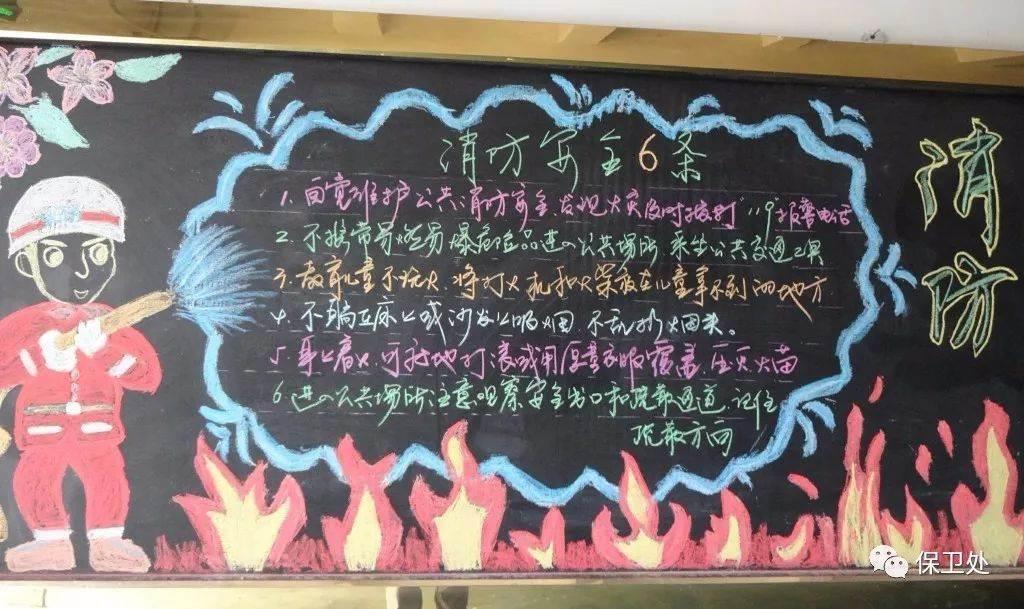 消防安全6条
1.自觉维护公共消防安全,发现火灾及时拨打"119"报警电话
2.不携带易燃易爆危险品进入公共场所、乘坐公共交通工具
3.教育儿童不玩火,将打火机和火柴放在儿童拿不到的地方
4.不躺在床上或沙发上吸烟,不乱扔烟头。
5.身上着火,可就地打滚或用厚重衣服覆盖压灭火苗
6.进入公共场所注意观察安全出口和疏散通道,记住
疏散方向
消防
保卫处